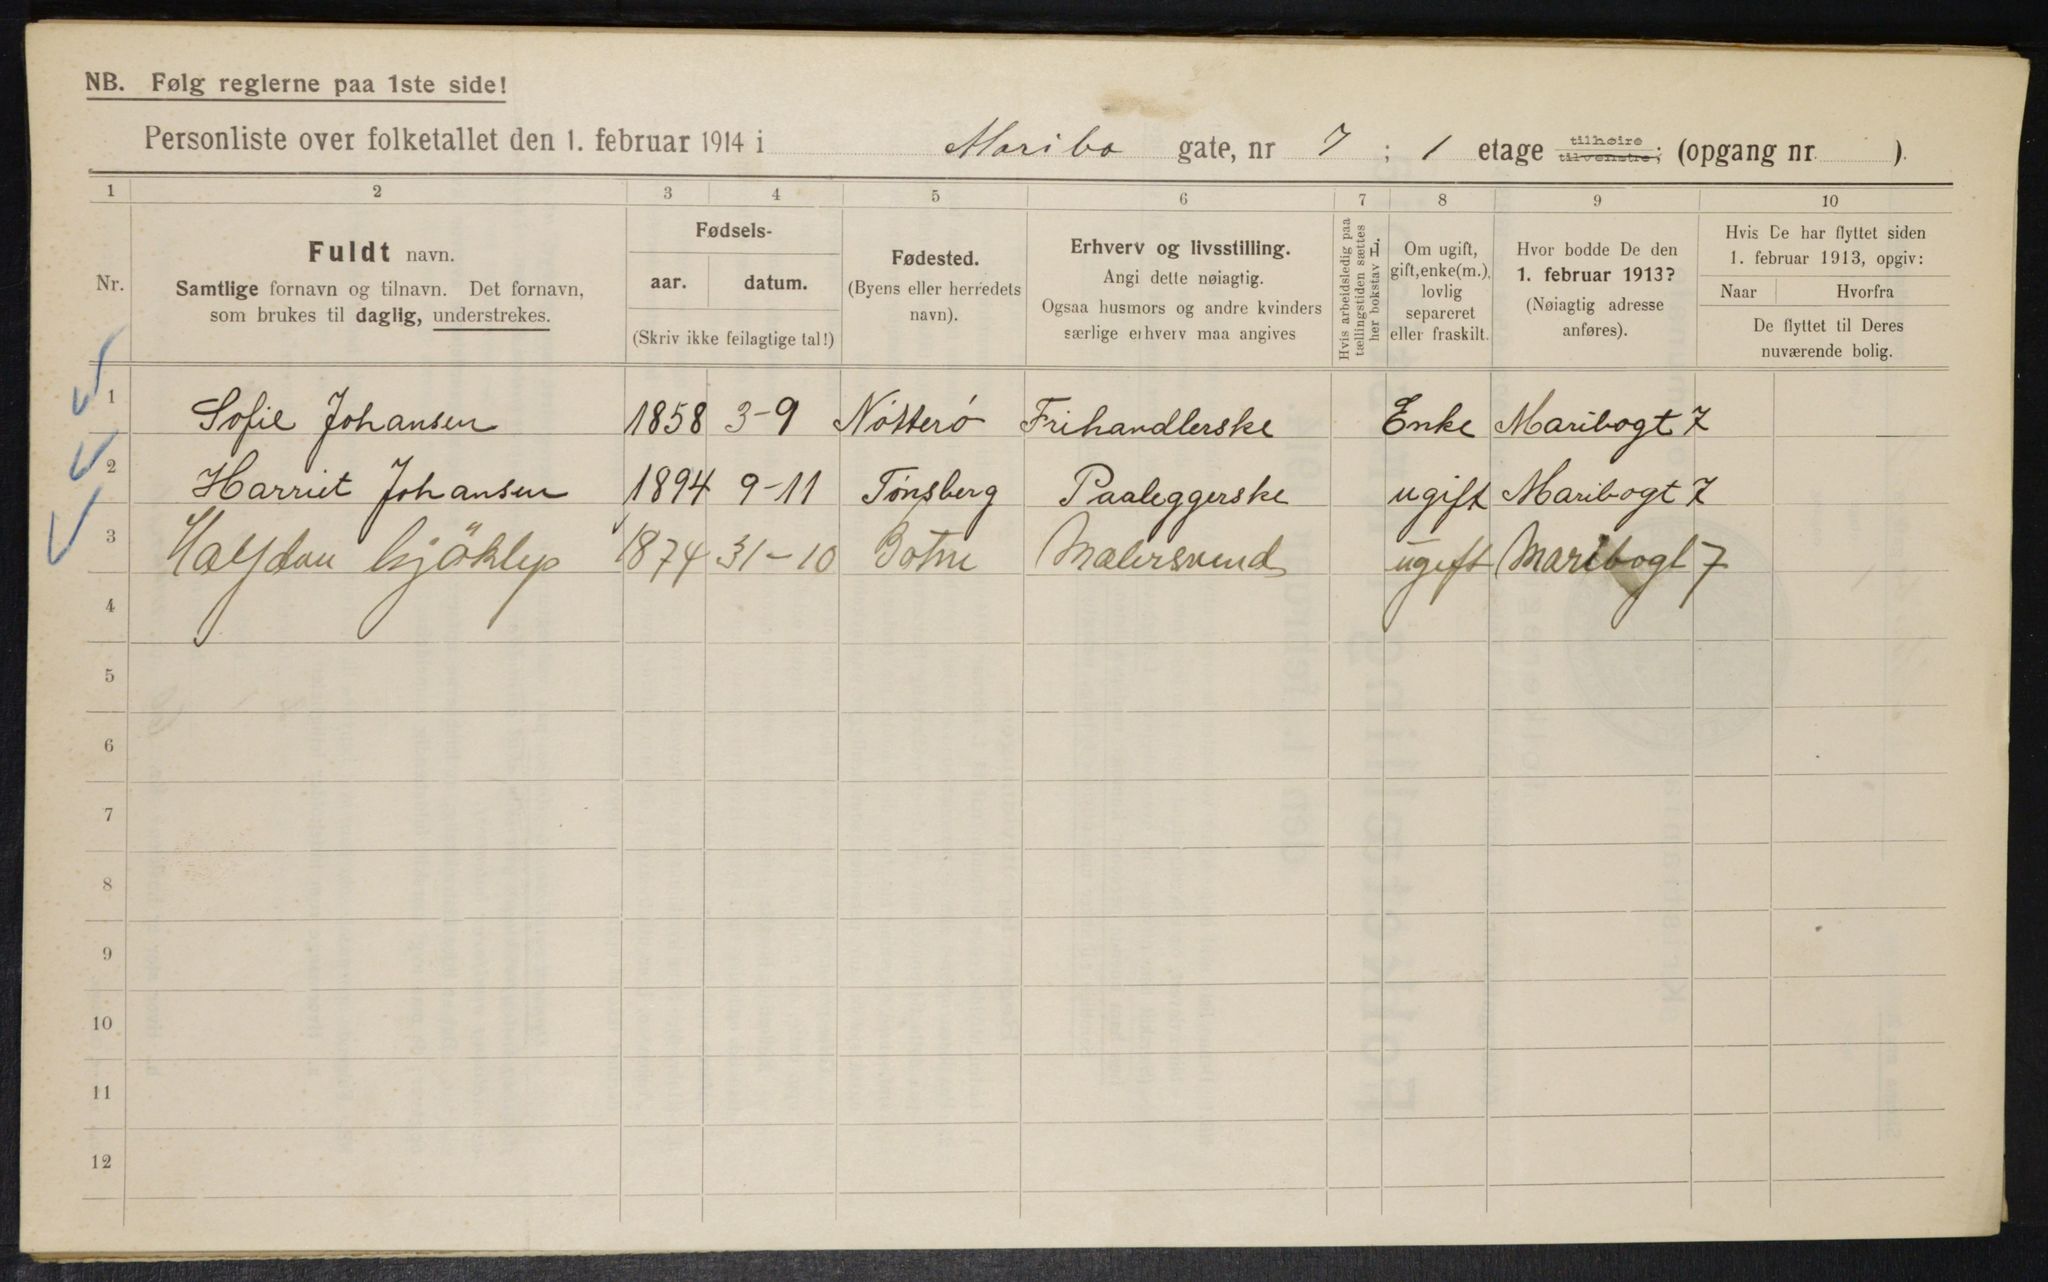 NB. Følg reglerne paa 1ste side!
Personliste over folketallet den 1. februar 1914 i Maribo gate, nr 7 ; 1 etage tilhøire tilvenstre; (opgang nr. ).
1 2 3 4 5 6 7 8 9 10
Nr.
Fuldt navn.
Samtlige fornavn og tilnavn. Det fornavn,
som brukes til daglig, understrekes.
Fødsels-
aar. datum.
(Skriv ikke feilagtige tal!)
Fødested.
(Byens eller herredets
navn).
Erhverv og livsstilling.
Angi dette nøiagtig.
Ogsaa husmors og andre kvinders
særlige erhverv maa angives
Hvis arbeidsledig paa
tællingstiden sættes
her bokstav L.
Om ugift,
gift, enke(m.),
lovlig
separeret
eller fraskilt.
Hvor bodde De den
1. februar 1913?
(Nøiagtig adresse
anføres).
Hvis De har flyttet siden
1. februar 1913, opgiv:
Naar Hvorfra
De flyttet til Deres
nuværende bolig.
1 Sofie Johansen 1858 3-9 Nötterö Frihandlerske Enke Maribogt 7
2 Harriet Johansen 1894 9-11 Tönsberg Paaleggerske ugift Maribogt 7
3 Halfdan 1874 31-10 Botne Malersvend ugift Maribogt 7
4
5
6
7
8
9
10
11
12